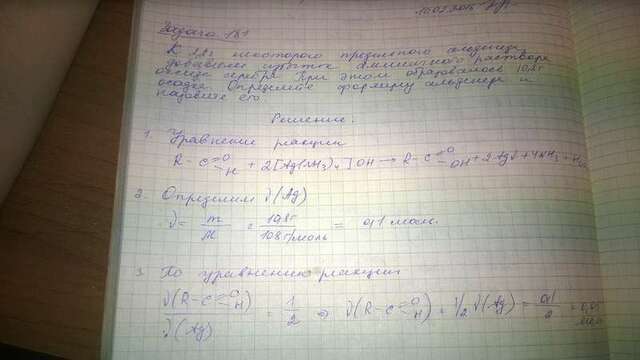 Задача №1
К 2,8г некоторого предельного альдегида
добавили избыток аммиачного раствора
оксида серебра. При этом образовалось 10,8г
осадка. Определите формулу альдегида и
назовите его.
Решение.
1. Уравнение реакции
R-C=O H + 2[Ag(NH3)2]OH → R-C=O OH + 2Ag↓ + 4NH3 +
2. Определим ν(Ag)
ν = m/M = 10,8г/108г/моль = 0,1 моль.
3. По уравнению реакции
ν(R-C=O H)/ν(Ag) = 1/2 ⇒ ν(R-C=O H) = 1/2 ν(Ag) = 0,1/2 =